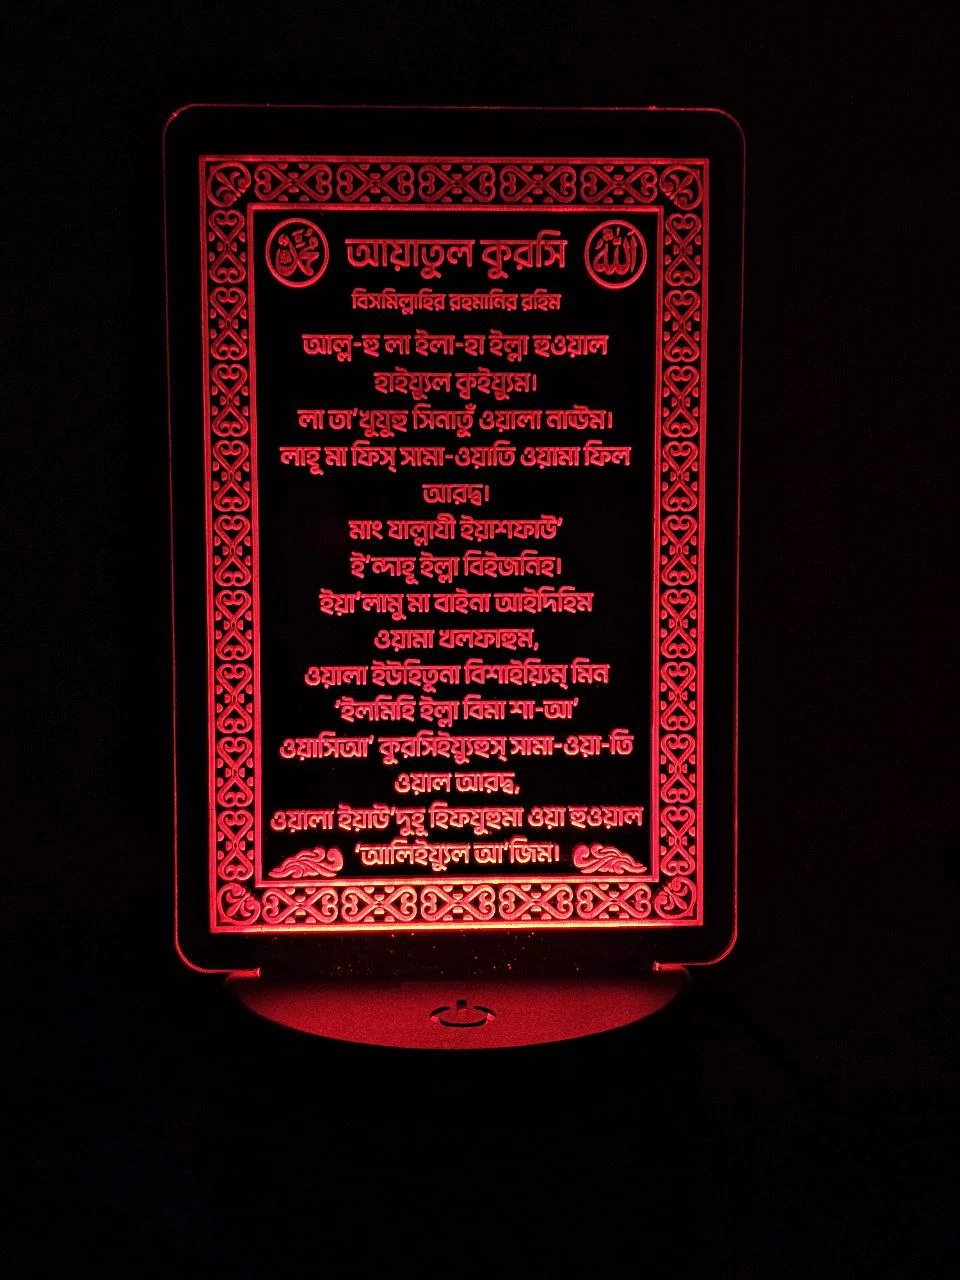 محمد
আয়াতুল কুরসি
الله
বিসমিল্লাহির রহমানির রহিম
আল্ল-হু লা ইলা-হা ইল্লা হুওয়াল
হাইয়্যুল ক্বইয়্যুম।
লা তা'খুযুহু সিনাতুঁ ওয়ালা নাঊম।
লাহূ মা ফিস্ সামা-ওয়াতি ওয়ামা ফিল
আরদ্ব।
মাং যাল্লাযী ইয়াশফাউ'
ই'ন্দাহূ ইল্লা বিইজনিহ।
ইয়া'লামু মা বাইনা আইদিহিম
ওয়ামা খলফাহুম,
ওয়ালা ইউহিতূনা বিশাইয়্যিম্ মিন
'ইলমিহি ইল্লা বিমা শা-আ'
ওয়াসিআ' কুরসিইয়্যুহুস্ সামা-ওয়া-তি
ওয়াল আরদ্ব,
ওয়ালা ইয়াউ'দুহূ হিফযুহুমা ওয়া হুওয়াল
'আলিইয়্যুল আ'জিম।